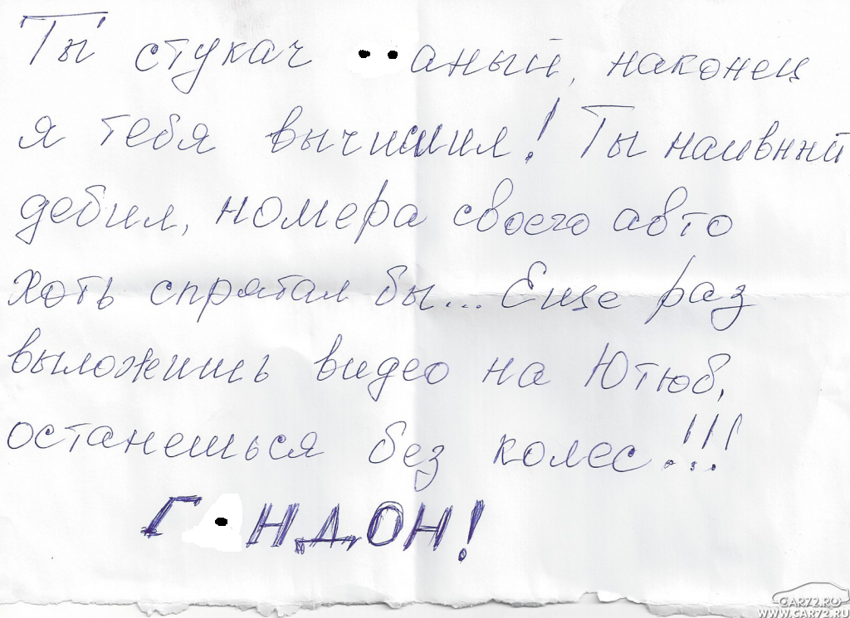 Ты стукач ••аный, наконец
я тебя вычислил! Ты наивнй
дебил, номера своего авто
хоть спрятал бы... Еще раз
выложишь видео на Ютюб,
останешься без колес!!!
Г•НДОН!
CAR72.RU
WWW.CAR72.RU